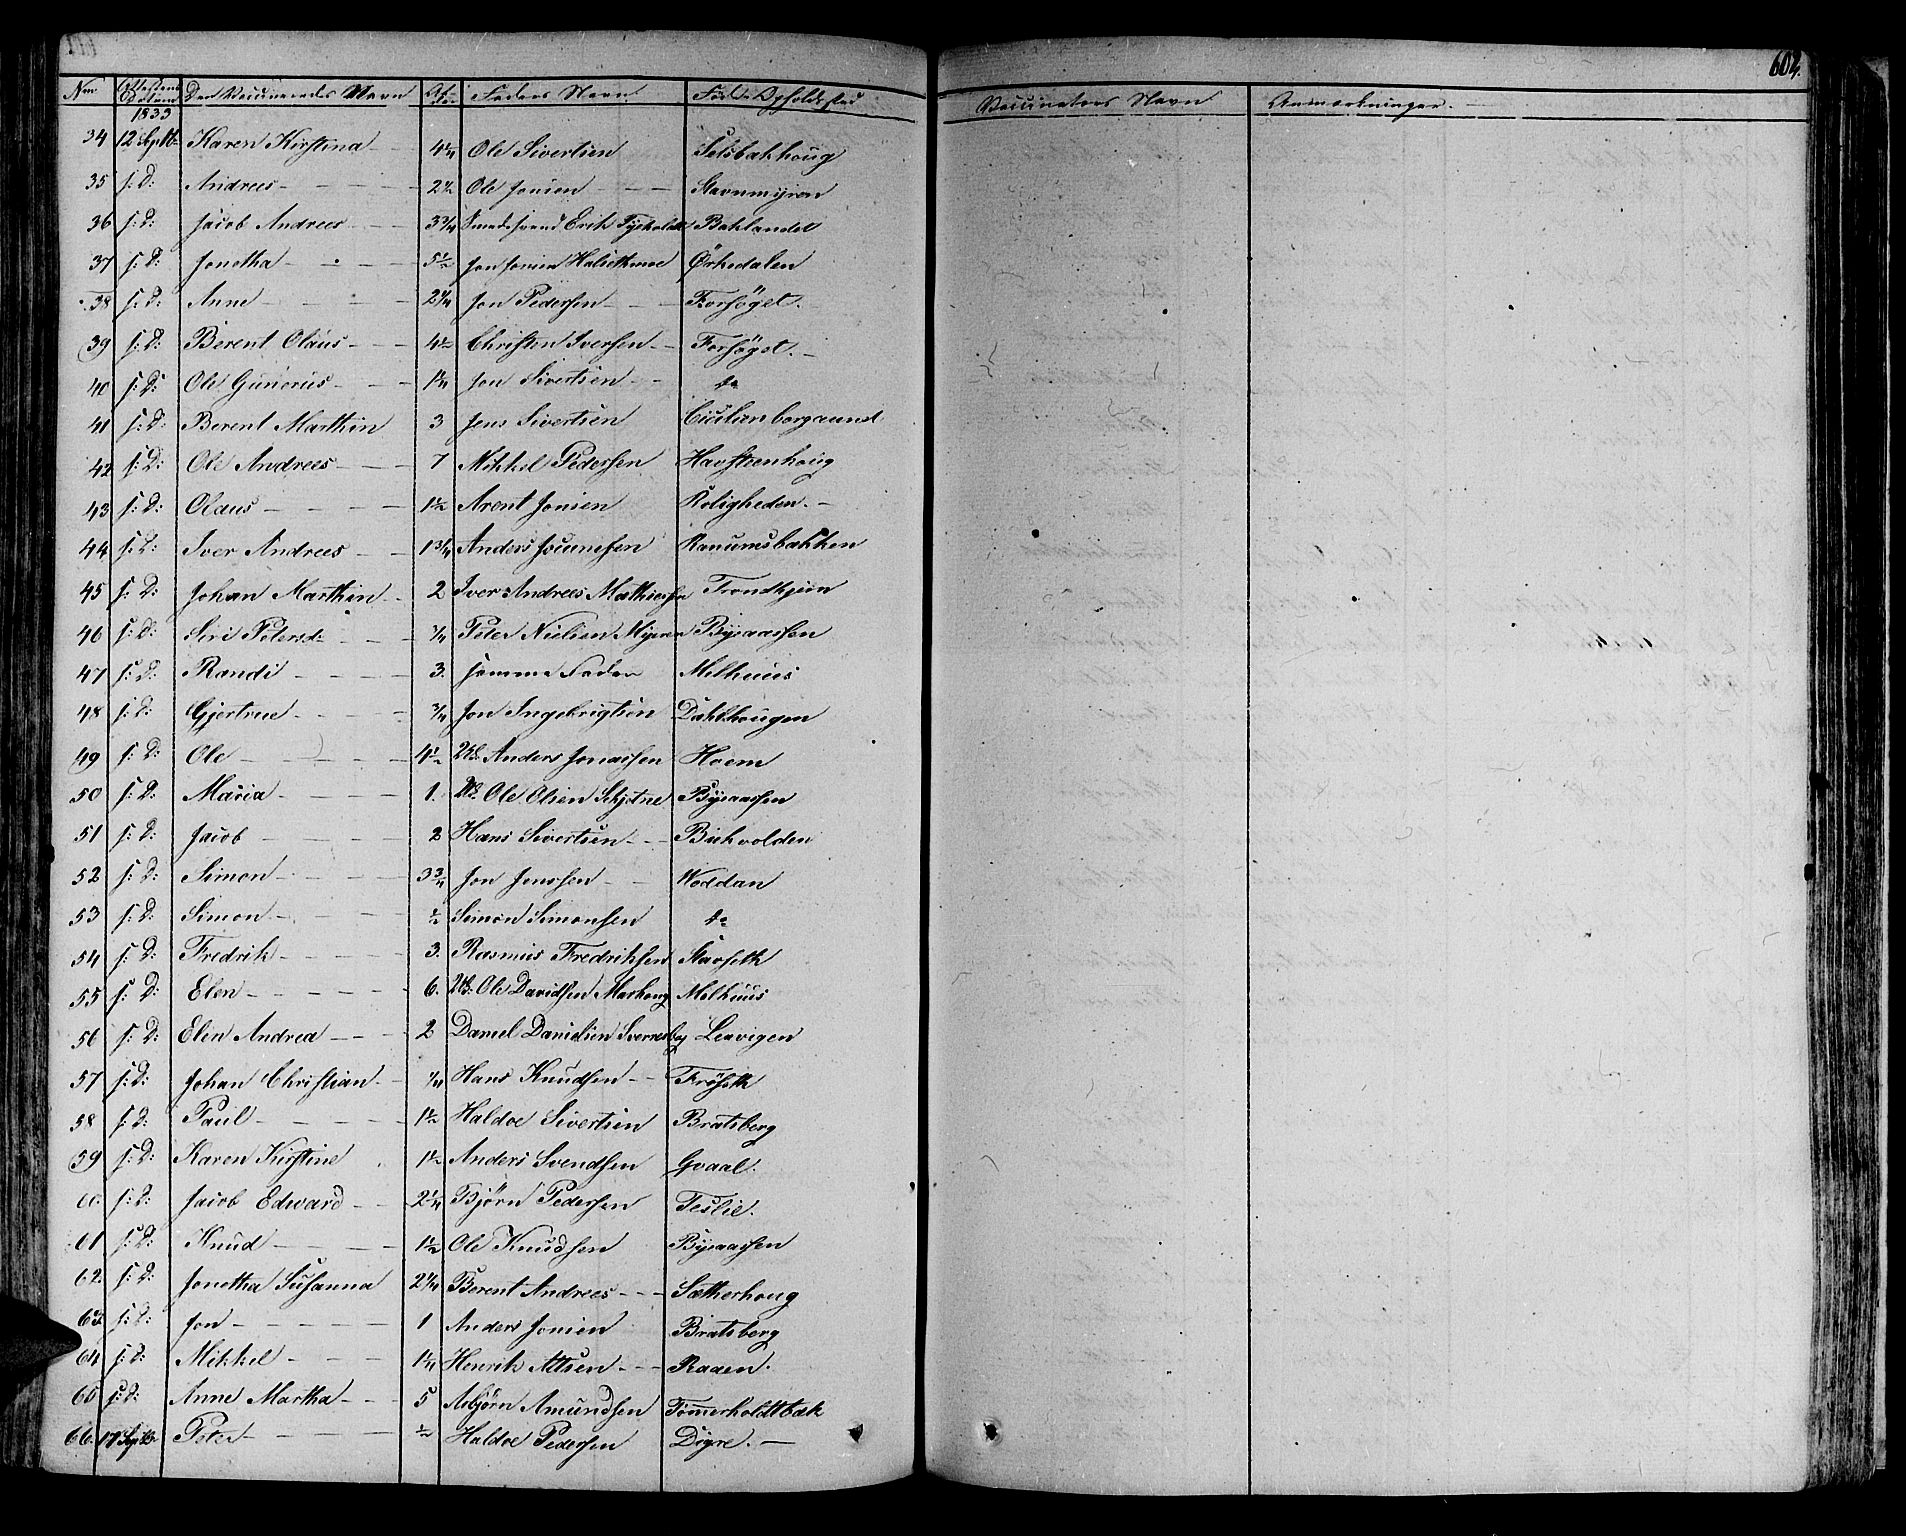 604.
Nrr Attestens Datum Den Vaccineredes Navn Al- Faders Navn Føde Opholdssted Vaccinators Navn Anmærkninger.
1833
34 12 Septb. Karen Kirstina 4 1/4 Ole Sivertsen Selsbakhoug
35 s: D: Andreas 2 1/2 Ole Jonsen Stavnmyren
36 s: D: Jacob Andreas 3 3/4 Smedesvend Erik Tyeholdt Baklandet
37 s: D: Jonetha 5 1/2 Jon Jonsen Ørkedalen
38 s: D: Anne 2 1/4 Jon Pedersen Forsøget.
39 s: D: Berent Olaus 4 1/2 Christen Iversen Forsøget.
40 s: D: Ole Gunerius 1 1/4 Jon Sivertsen do
41 s: D: Berent Marthin 3 Jens Sivertsen Cicilienborgaunet
42 s: D: Ole Andreas 7 Mikkel Pedersen Havsteenhoug
43 s: D: Olaus 1 1/2 Arent Jonsen Roligheden.
44 s: D: Iver Andreas 1 3/4 Anders Ranumsbakken
45 s: D: Johan Marthin 2 Iver Andreas Mathiesen Trondhjem
46 s: D: Siri Petersd: 3/4 Peter Nielsen Myeren Byeaassen
47 s: D: Randi 3. Samme Fader Melhuus
48 s: D: Gjertrue 3/4 Jon Ingebrigtsen Dahlhougen
49 s: D: Ole 4 1/2 Anders Jonassen Hoem
50 s: D: Maria 1. Ole Olsen Schjetne Byeaassen
51 s: D: Jacob 2 Hans Sivertsen Birkvolden
52 s: D: Simon 3 3/4 Jon Jonssen Woddan
53 s: D: Simon 1/2 Simon Simonsen do
54 s: D: Fredrik 3. Rasmus Fredriksen Stavseth
55 s: D: Elen 6. Ole Davidsen Melhuus
56 s: D: Elen Andrea 2 Daniel Danielsen Leervigen
57 s: D: Johan Christian 1/4 Hans Knudsen Frøseth
58 s: D: Paul 1 1/2 Haldoe Sivertsen Bratsberg
59 s: D: Karen Kirstine 1 1/2 Anders Svendsen Qvaal.
60 s: D: Jacob Edward 2 1/4 Bjørn Pedersen Teslie.
61 s: D: Knud 1 1/2 Ole Knudsen Byeaassen
62. s: D: Jonetha Susanna 2 1/4 Berent Andreas Sætherhoug
63 s: D: Jon 1 Anders Jonsen Bratsberg
64 s: D: Mikkel 1 1/4 Henrik Altsen Raaen.
65 s: D: Anne Martha 5 Asbjørn Amundsen Tømerholdtbak
66. 17 Septb. Peter 1/2 Haldoe Pedersen Digre.